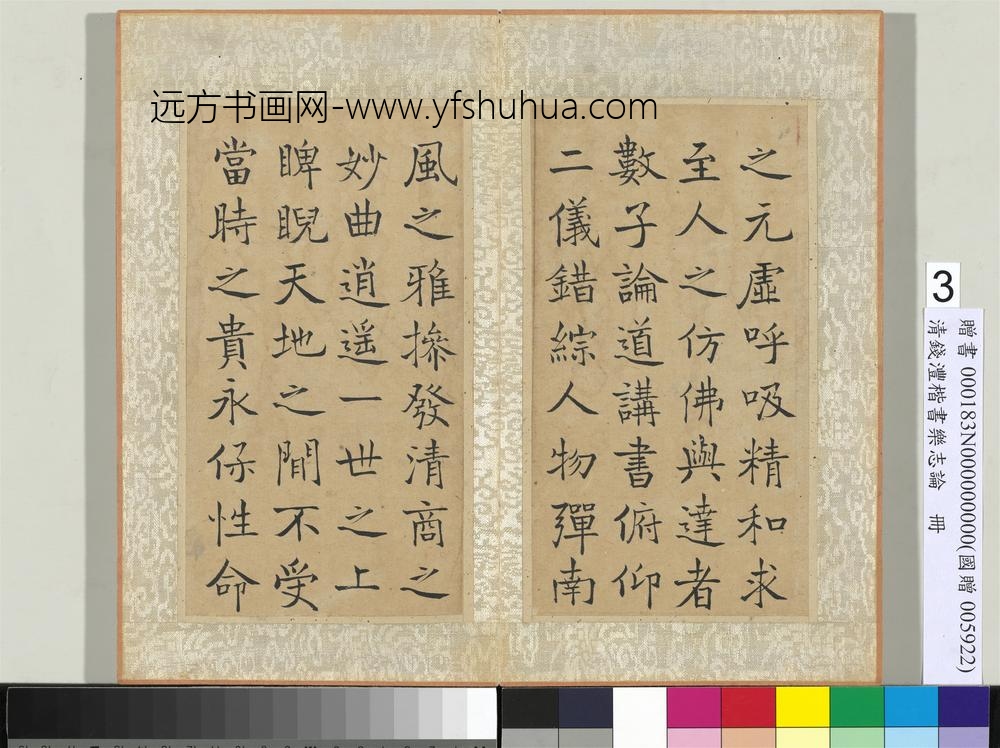 远方书画网-www.yfshuhua.com
之元虛呼吸精和求
至人之仿佛與達者
數子論道講書俯仰
二儀錯綜人物彈南
風之雅操發清商之
妙曲逍遥一世之上
睥睨天地之間不受
當時之貴永保性命
3
贈書 000183N000000000(國贈 005922)
清錢灃楷書樂志論 冊